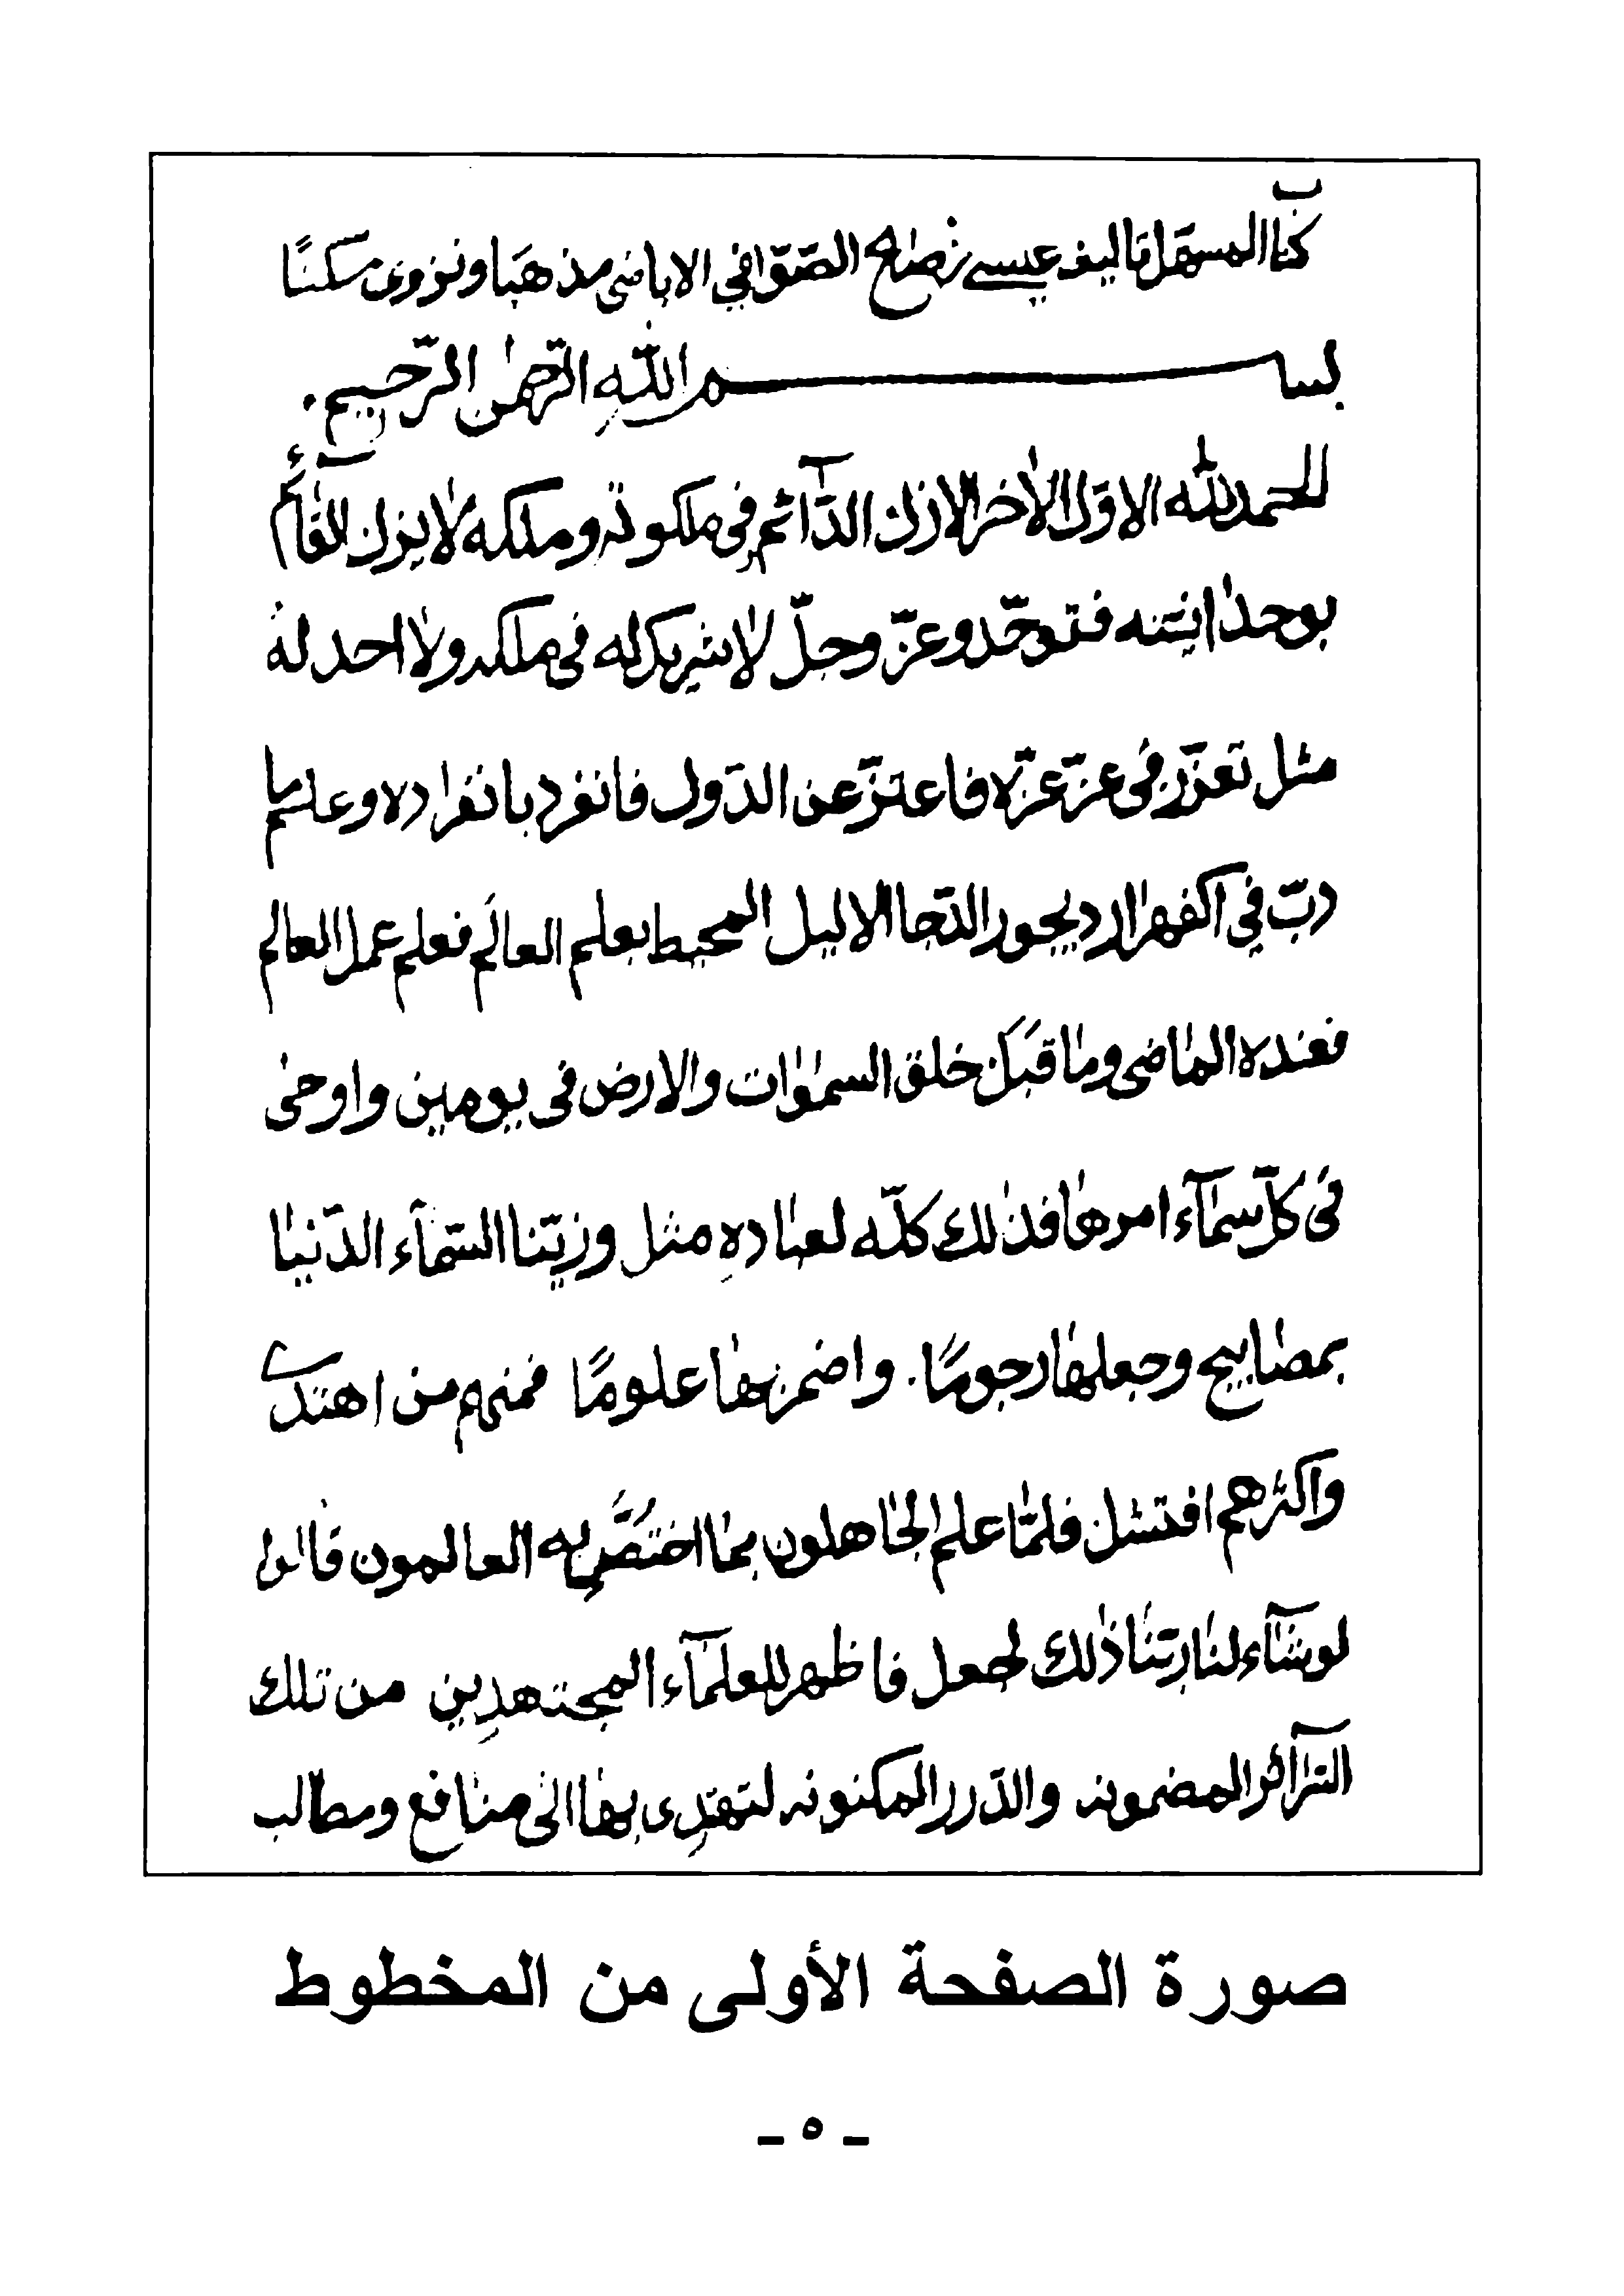 كتاب المسهل تاليف عيسى بن صالح الصّوّافي الاباضي مذهبًا ونزوى مسكنًا
بســـم اللّٰهِ الرّحمٰن الرّحيم .
الحمد للّٰه الاوّل الاٰخر الازلن الدّآئم في ملكوته وملكه لا يزلن القآئم
بوحدانيّته فتوحّد وعزّ وجلّ لا شريك له في ملكه ولا احد له
مثل تعزّز في عزّ عزّه فاعتزّ عن الدّول فانفرد بانفراده وعلم ما
دبّ في اكفهرار ديجور الدّجا الاليل المحيط بعلم العالَم فعلم عمل العالم
فعنده الماضى وما قبَلن خلق السمٰوات والارض في يومين واوحىٰ
في كلّ سمآء امرها فذٰلك كلّه لعباده مثل وزيّنا السّمآء الدّنيا
بمصابيح وجعلها رجومًا . واضمر بها علومًا فمنهم من اهتدى
واكثرهم افتشل فلمّا علم الجاهلون بما اختُصَّ به العالمون قالوا
لو شآء لنا ربّنا ذٰلك لجعل فاظهر للعلمآء المجتهدِين من تلك
السّرآئر المضمونه والدّرر المكنونه لتهتدِى بها الىٰ منافع ومطالب
صورة الصفحة الأولى من المخطوط
- ٥ -